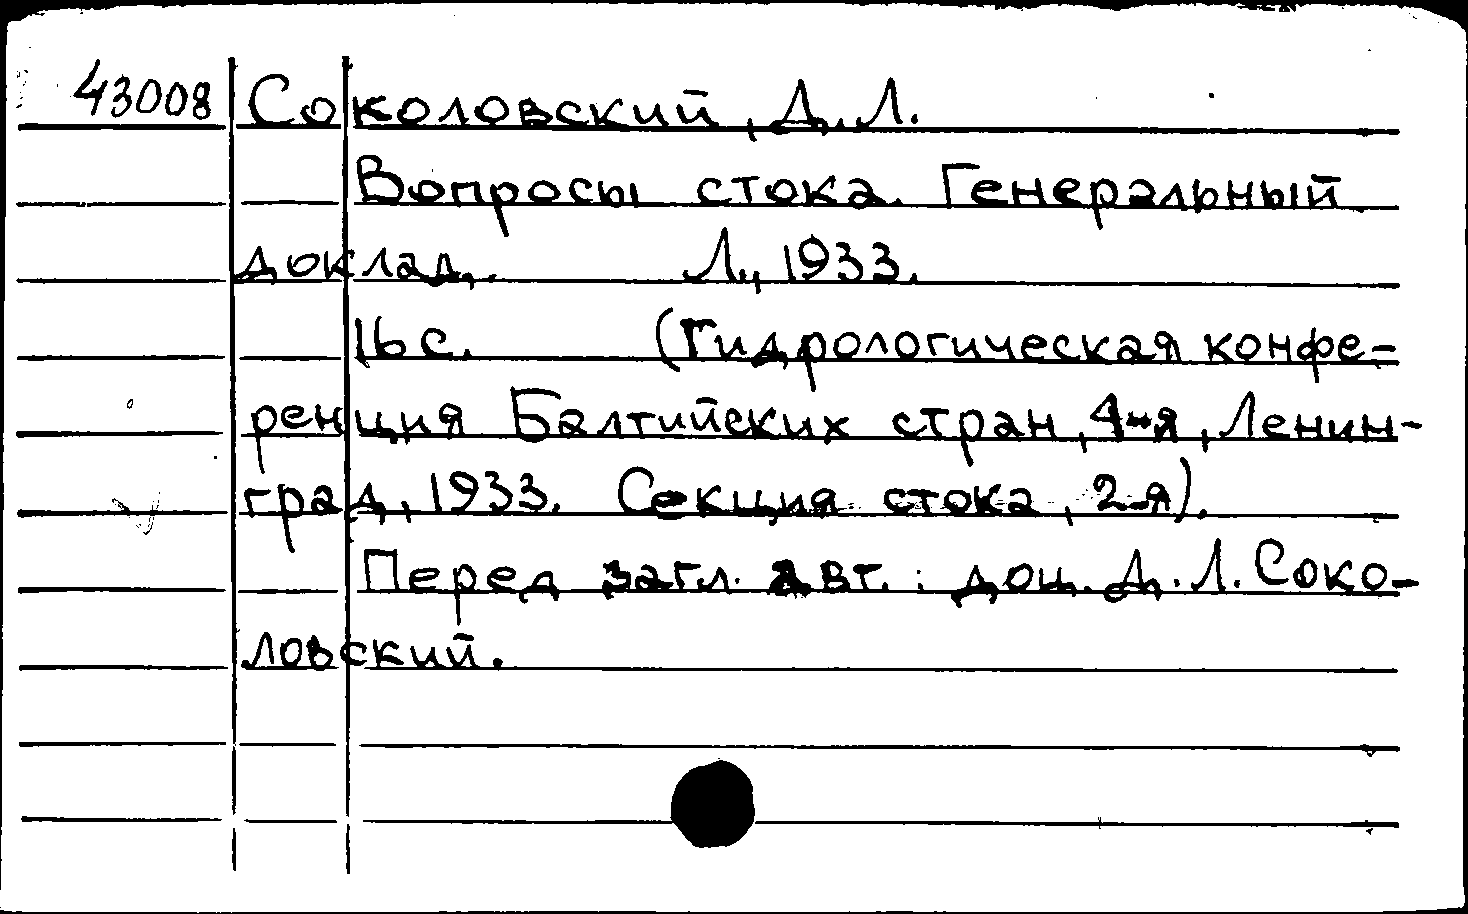 43008 Соколовский, Д.Л.
Вопросы стока. Генеральный
доклад. Л., 1933.
16 с. (Гидрологическая конфе-
ренция Балтийских стран, 4-я, Ленин-
град, 1933. Секция стока, 2-я).
Перед загл. авт.: доц. Д.Л. Соко-
ловский.